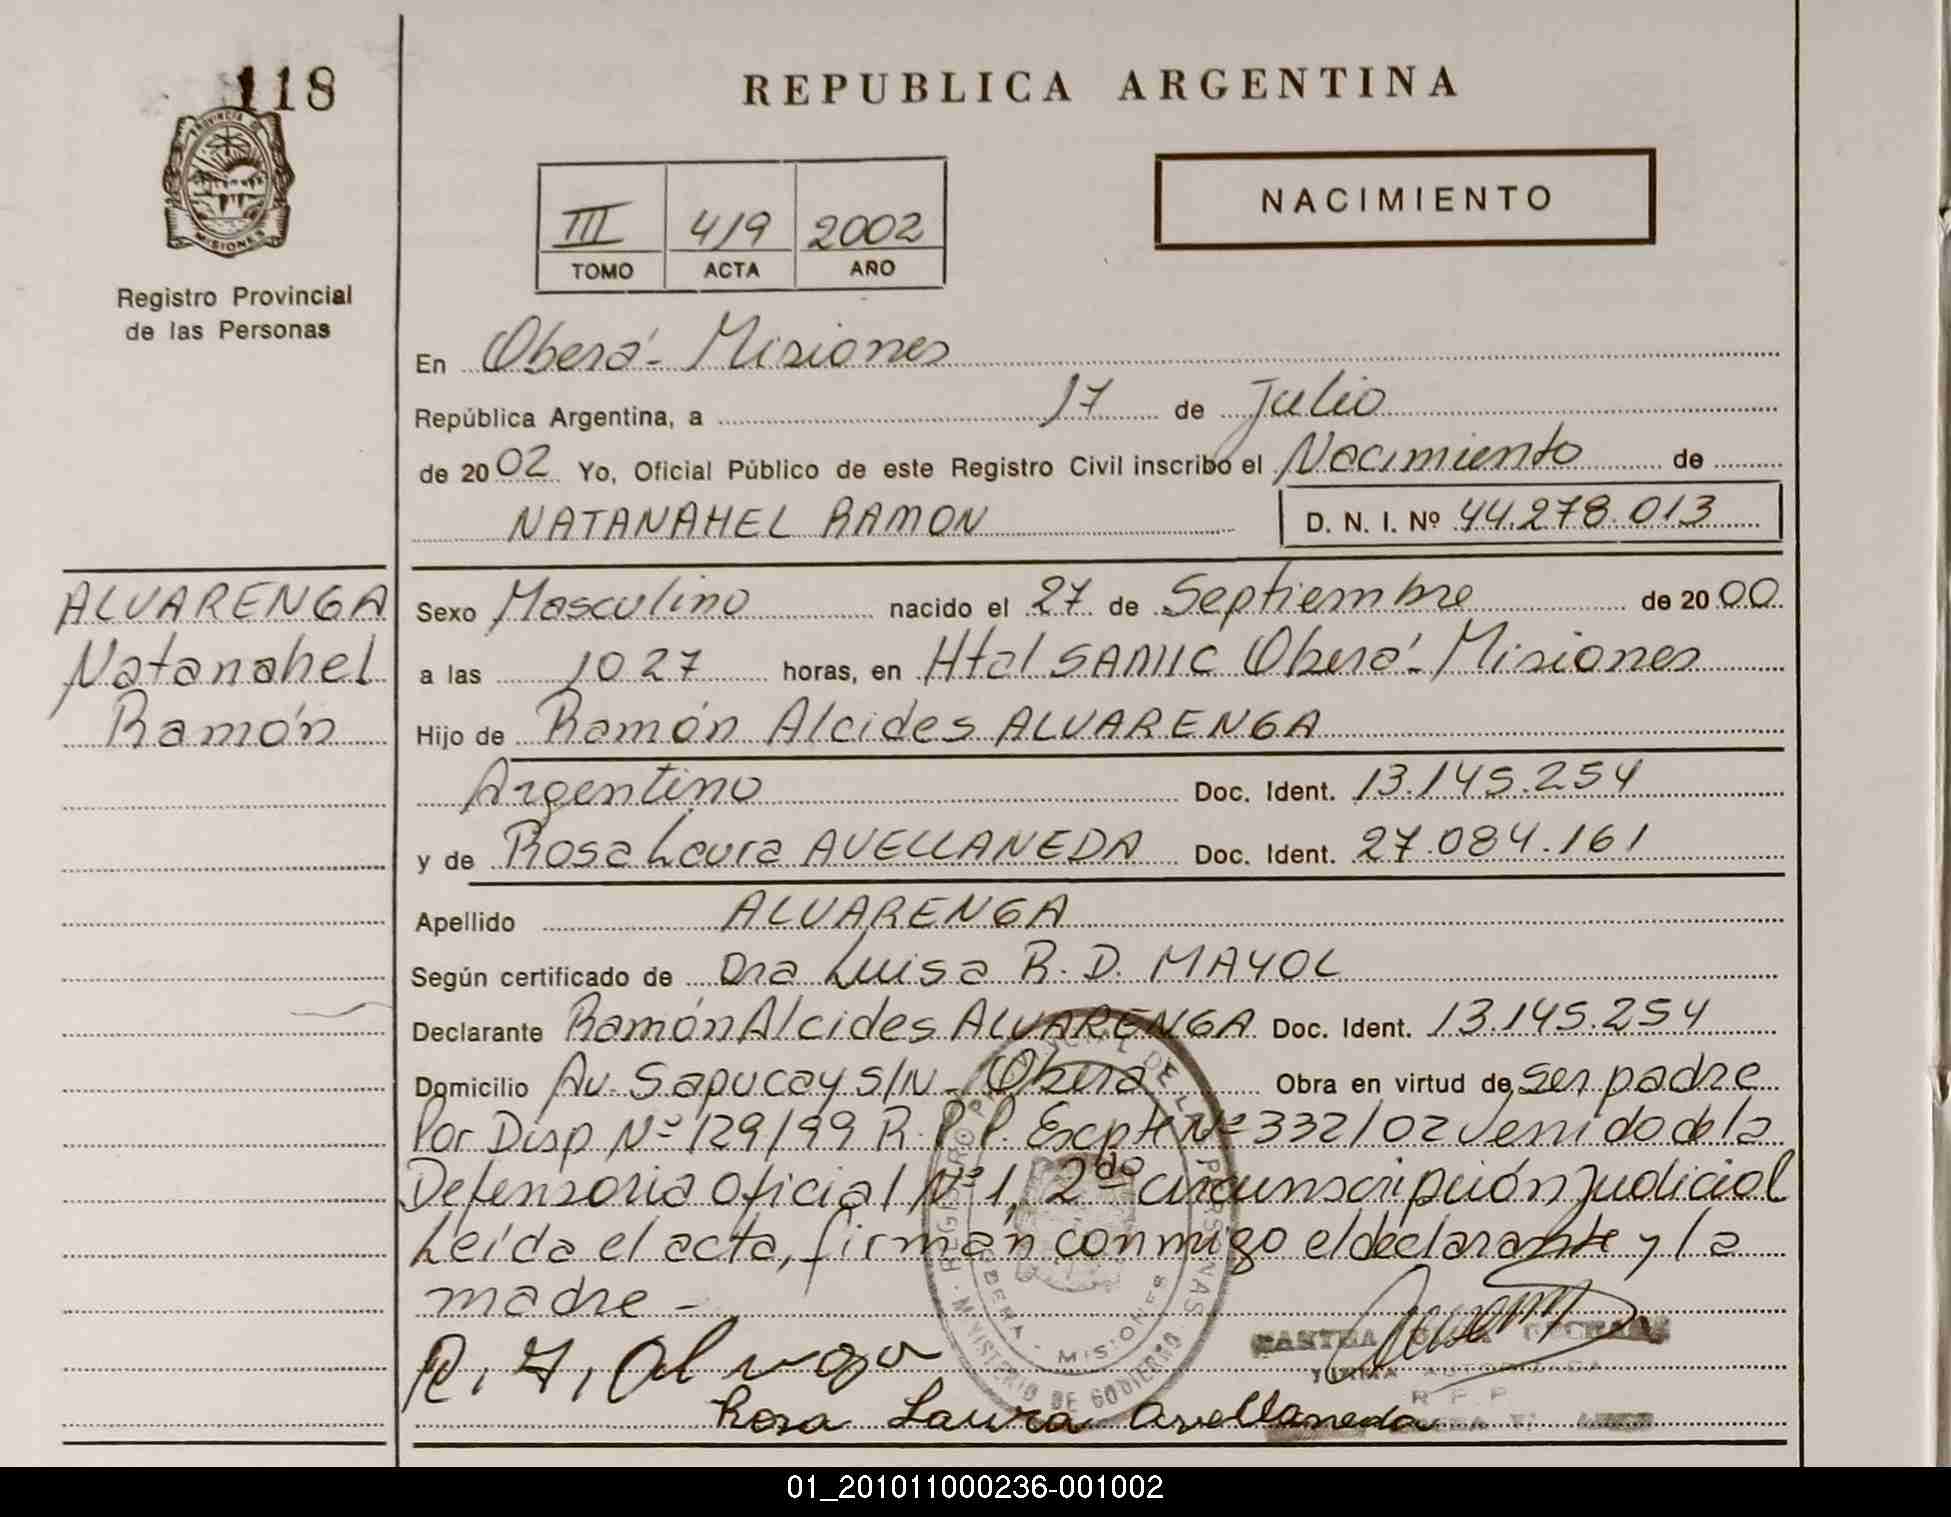 118
REPUBLICA ARGENTINA
PROVINCIA DE
MISIONES
NACIMIENTO
III 419 2002
TOMO ACTA AÑO
Registro Provincial
de las Personas
En Oberá - Misiones
República Argentina, a 17 de Julio
de 2002 Yo, Oficial Público de este Registro Civil inscribo el Nacimiento de
NATANAHEL RAMON D. N. I. Nº 44.278.013
ALVARENGA
Natanahel
Ramón
Sexo Masculino nacido el 27 de Septiembre de 2000
a las 10 27 horas, en Htal SAMIC Oberá - Misiones
Hijo de Ramón Alcides ALVARENGA
Argentino Doc. Ident. 13.145.254
y de Rosa Laura AVELLANEDA Doc. Ident. 27.084.161
Apellido ALVARENGA
Según certificado de Dra Luisa R. D. MAYOL
Declarante Ramón Alcides ALVARENGA Doc. Ident. 13.145.254
Domicilio Av. Sapucay S/N - Oberá Obra en virtud de ser padre
Por Disp. Nº 129/99 R.P.P. Expte Nº 332/02 venido de la
Defensoria oficial Nº 1, 2da circunscripción Judicial
Leída el acta, firman conmigo el declarante y la
madre -
REGISTRO PROVINCIAL DE LAS PERSONAS
OBERA - MISIONES
MINISTERIO DE GOBIERNO
FIRMA AUTORIZADA
R P P
Rosa Laura Avellaneda
01_201011000236-001002